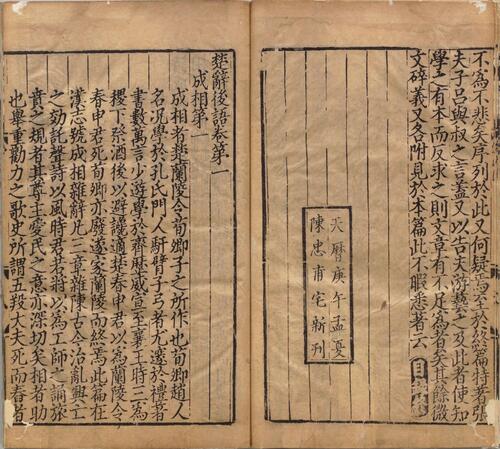 不為不悲矣序列於此又何疑焉至於終篇特著張
夫子呂與叔之言蓋又以告夫游藝之及此者使知
學之有本而反求之則文章有不足為者矣其餘微
文碎義又各附見於本篇此不暇悉著云 目
天曆庚午孟夏
陳忠甫宅新刊
楚辭後語卷第一
成相第一
成相者楚蘭陵令荀卿子之所作也荀卿趙人
名况學於孔氏門人馯臂子弓者尤邃於禮著
書數萬言少遊學於齊歷威宣至襄王時三為
稷下祭酒後以避讒適楚春申君以為蘭陵令
春申君死荀卿亦廢遂家蘭陵而終焉此篇在
漢志號成相雜辭凡三章雜陳古今治亂興亡
之効託聲詩以風時君若將以為工師之誦旅
賁之規者其尊主愛民之意亦深切矣相者助
也舉重勸力之歌史所謂五羖大夫死而舂者